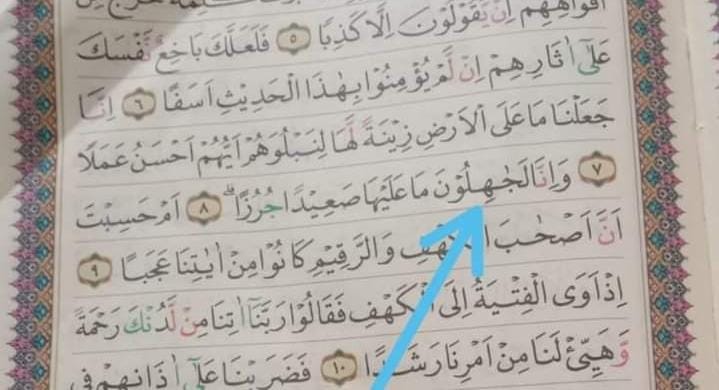 كَلِمَةً تَخْرُجُ مِنْ
اَفْوَاهِهِمْ اِنْ يَّقُوْلُوْنَ اِلَّا كَذِبًا ٥ فَلَعَلَّكَ بَاخِعٌ نَّفْسَكَ
عَلٰٓى اٰثَارِهِمْ اِنْ لَّمْ يُؤْمِنُوْا بِهٰذَا الْحَدِيْثِ اَسَفًا ٦ اِنَّا
جَعَلْنَا مَا عَلَى الْاَرْضِ زِيْنَةً لَّهَا لِنَبْلُوَهُمْ اَيُّهُمْ اَحْسَنُ عَمَلًا
٧ وَاِنَّا لَجٰهِلُوْنَ مَا عَلَيْهَا صَعِيْدًا جُرُزًاۗ ٨ اَمْ حَسِبْتَ
اَنَّ اَصْحٰبَ الْكَهْفِ وَالرَّقِيْمِ كَانُوْا مِنْ اٰيٰتِنَا عَجَبًا ٩
اِذْ اَوَى الْفِتْيَةُ اِلَى الْكَهْفِ فَقَالُوْا رَبَّنَآ اٰتِنَا مِنْ لَّدُنْكَ رَحْمَةً
وَّهَيِّئْ لَنَا مِنْ اَمْرِنَا رَشَدًا ١٠ فَضَرَبْنَا عَلٰٓى اٰذَانِهِمْ فِى